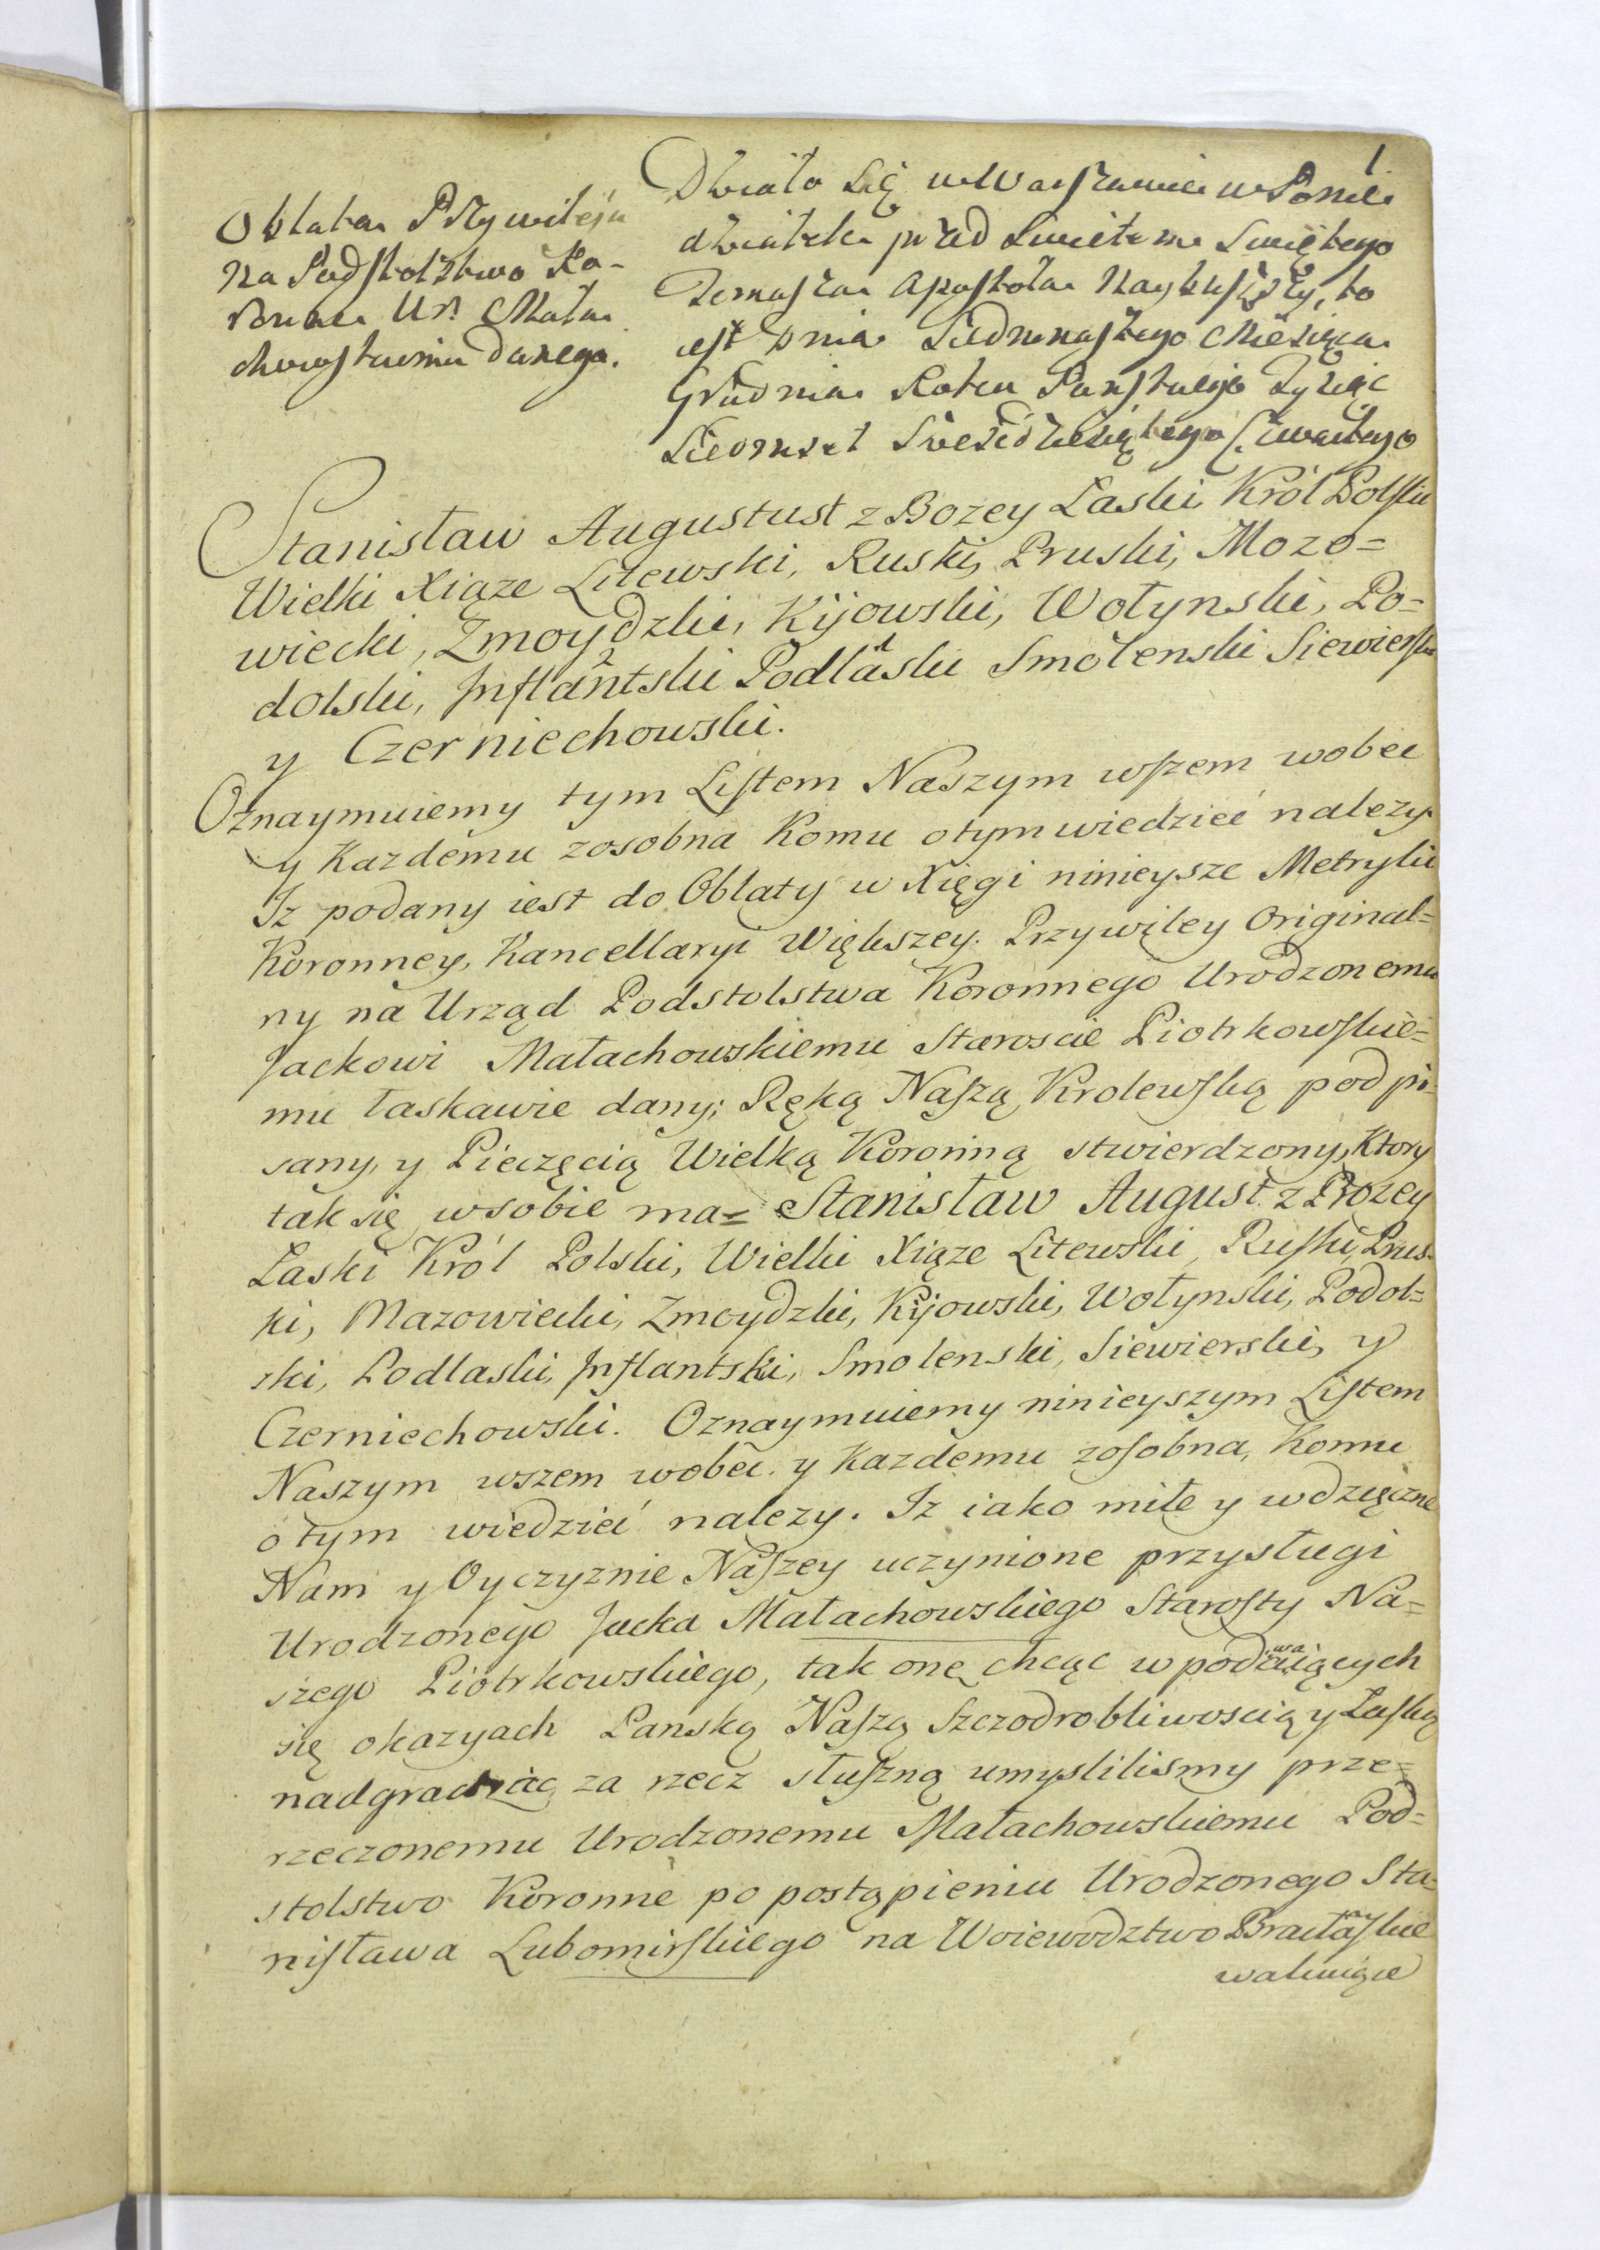 1
Oblata Przywileju
Na Podstolstwo Ko-
ronne Ur. Mała
chowskiemu danego.
Działo się w Warszawie w Ponie
działek przed Swiętem Swiętego
Tomasza Apostoła Naybliższy, to
iest Dnia Siedmnastego Miesiąca
Grudnia Roku Panskiego Tysiąc
Siedmset Szescdziesiątego Czwartego
Stanisław Augustust z Bozey Laski Król Polski
Wielki Xiąze Litewski, Ruski, Pruski, Mozo=
wiecki, Zmoydzki, Kijowski, Wołynski, Po=
dolski, Inflantski Podlaski Smolenski Siewierski
y Czerniechowski.
Oznaymuiemy tym Listem Naszym wszem wobec
y Kazdemu zosobna Komu otym wiedzieć nalezy
Iz podany iest do Oblaty w Xięgi ninieysze Metryki
Koronney, Kancellaryi Większey. Przywiley Original=
ny na Urząd Podstolstwa Koronnego Urodzonemu
Jackowi Małachowskiemu Staroscie Piotrkowskie=
mu łaskawie dany; Ręką Naszą Krolewską podpi-
sany, y Pieczęcią Wielką Koronną stwierdzony, Ktory
tak się wsobie ma= Stanisław August z Bozey
Laski Król Polski, Wielki Xiąze Litewski, Ruski, Prus-
ki, Mazowiecki, Zmoydzki, Kijowski, Wołynski, Podol=
ski, Podlaski, Inflantski, Smolenski, Siewierski, y
Czerniechowski. Oznaymuiemy ninieyszym Listem
Naszym wszem wobec. y Kazdemu zosobna, Komu
otym wiedzieć nalezy. Iz iako miłe y wdzięczne
Nam y Oyczyznie Naszey uczynione przysługi
Urodzonego Jacka Małachowskiego Starosty Na=
szego Piotrkowskiego, tak one chcąc w podawaiących
się okazyach Panską Naszą Szczodrobliwoscią y Łaską
nadgradzac, za rzecz słuszną umyslilismy prze=
rzeczonemu Urodzonemu Małachowskiemu Pod=
stolstwo Koronne po postąpieniu Urodzonego Sta=
nisława Lubomirskiego na Woiewodztwo Bracławskie
wakuiące